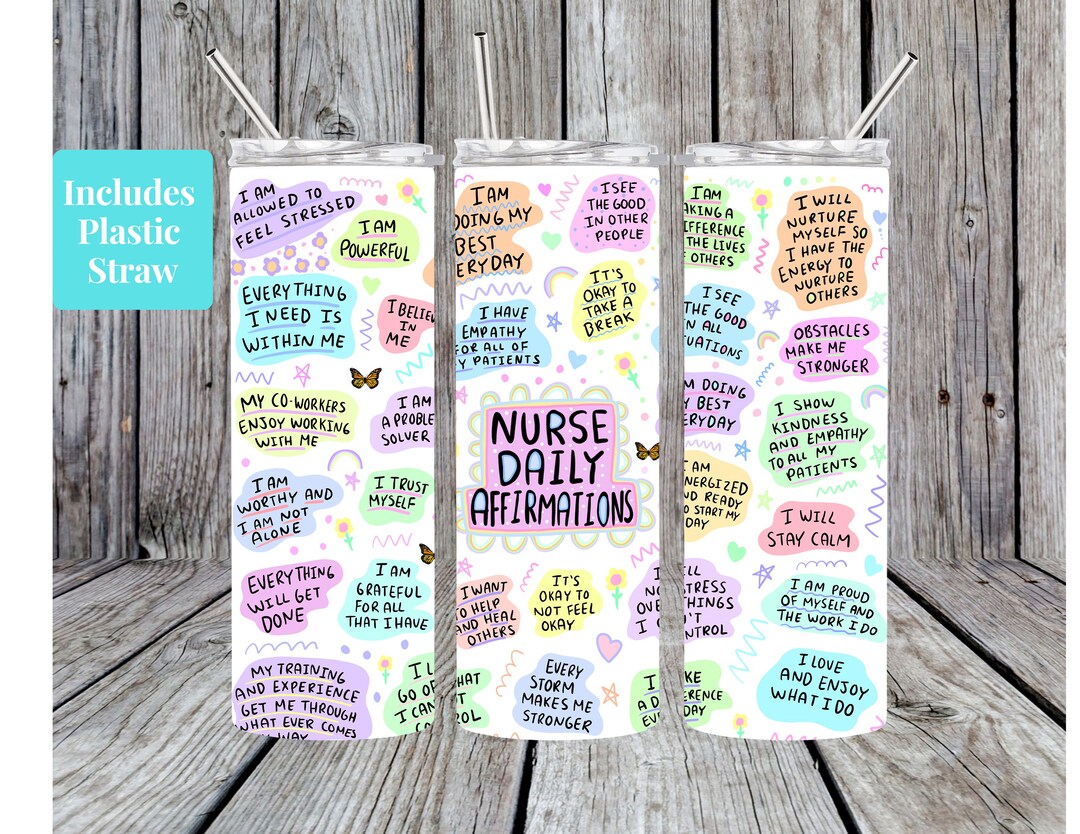 Includes
Plastic
Straw
I AM
ALLOWED TO
FEEL STRESSED
I AM
POWERFUL
EVERYTHING
I NEED IS
WITHIN ME
I BELIEV
IN
ME
MY CO-WORKERS
ENJOY WORKING
WITH ME
I AM
A PROBLE
SOLVER
I AM
WORTHY AND
I AM NOT
ALONE
I TRUST
MYSELF
EVERYTHING
WILL GET
DONE
I AM
GRATEFUL
FOR ALL
THAT I HAVE
MY TRAINING
AND EXPERIENCE
GET ME THROUGH
WHAT EVER COMES
MY WAY
I L
GO OF
I CAN
CO
I AM
DOING MY
BEST
ERYDAY
I SEE
THE GOOD
IN OTHER
PEOPLE
I HAVE
EMPATHY
FOR ALL OF
Y PATIENTS
IT'S
OKAY TO
TAKE A
BREAK
NURSE
DAILY
AFFIRMATIONS
I WANT
TO HELP
AND HEAL
OTHERS
IT'S
OKAY TO
NOT FEEL
OKAY
I
NO
OVE
I C
HAT
T
ROL
EVERY
STORM
MAKES ME
STRONGER
I
A D
EVE
I AM
AKING A
IFFERENCE
THE LIVES
OTHERS
I WILL
NURTURE
MYSELF SO
I HAVE THE
ENERGY TO
NURTURE
OTHERS
I SEE
THE GOOD
IN ALL
TUATIONS
OBSTACLES
MAKE ME
STRONGER
M DOING
Y BEST
ERYDAY
I SHOW
KINDNESS
AND EMPATHY
TO ALL MY
PATIENTS
I AM
NERGIZED
ND READY
O START MY
DAY
I WILL
STAY CALM
ILL
STRESS
THINGS
N'T
NTROL
I AM PROUD
OF MYSELF AND
THE WORK I DO
KE
ERENCE
DAY
I LOVE
AND ENJOY
WHAT I DO